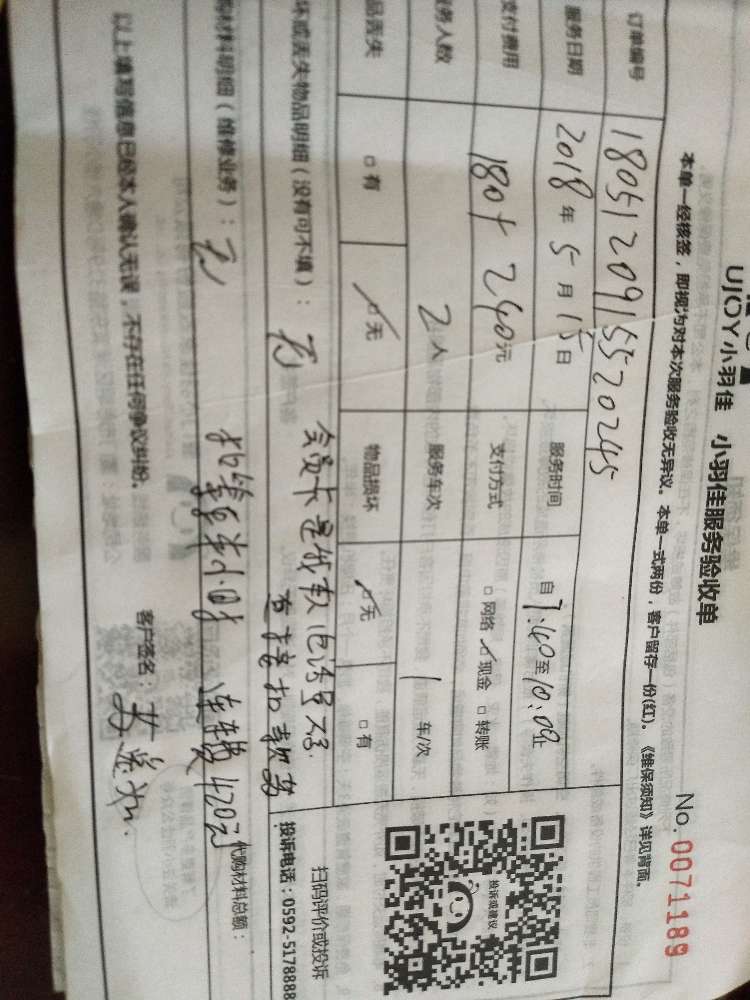 UJOY小羽佳 小羽佳服务验收单 No.0071189
本单一经核签,即视为对本次服务验收无异议。本单一式两份,客户留存一份(红)。《维保须知》详见背面。
订单编号 18051209155520245
服务日期 2018年5月15日 服务时间 自7:40至10:09止
支付费用 180+240元 支付方式 □网络 ☑现金 □转账
服务人数 2人 服务车次 1车/次
品丢失 □有 ☑无 物品损坏 ☑无 □有
坏或丢失物品明细(没有可不填): 无
会员卡是钱款 电话号码
直接扣款
购材料明细(维修业务): 无
半小时 车费 420元 代购材料总额:
以上填写信息已经本人确认无误,不存在任何争议纠纷。 客户签名:
投诉或建议
扫码评价或投诉
投诉电话:0592-5178888